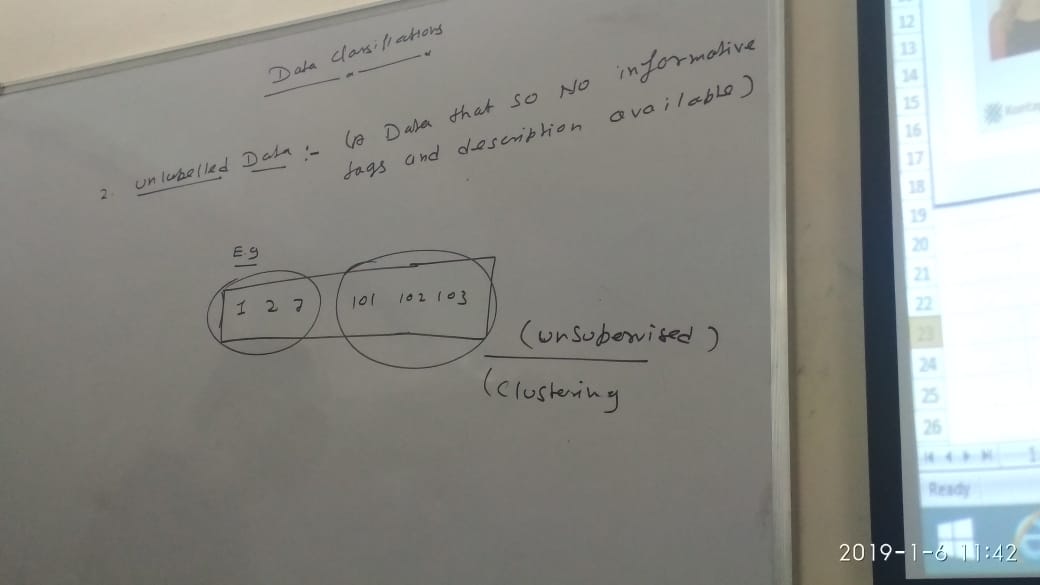 Data Classifications
2. unlabelled Data :- Data that so No informative
tags and description available)
E.g
1 2 3 101 102 103
(unsupervised)
(Clustering
12
13
14
15
16
17
18
19
20
21
22
23
24
25
26
1
Ready
2019-1-6 11:42